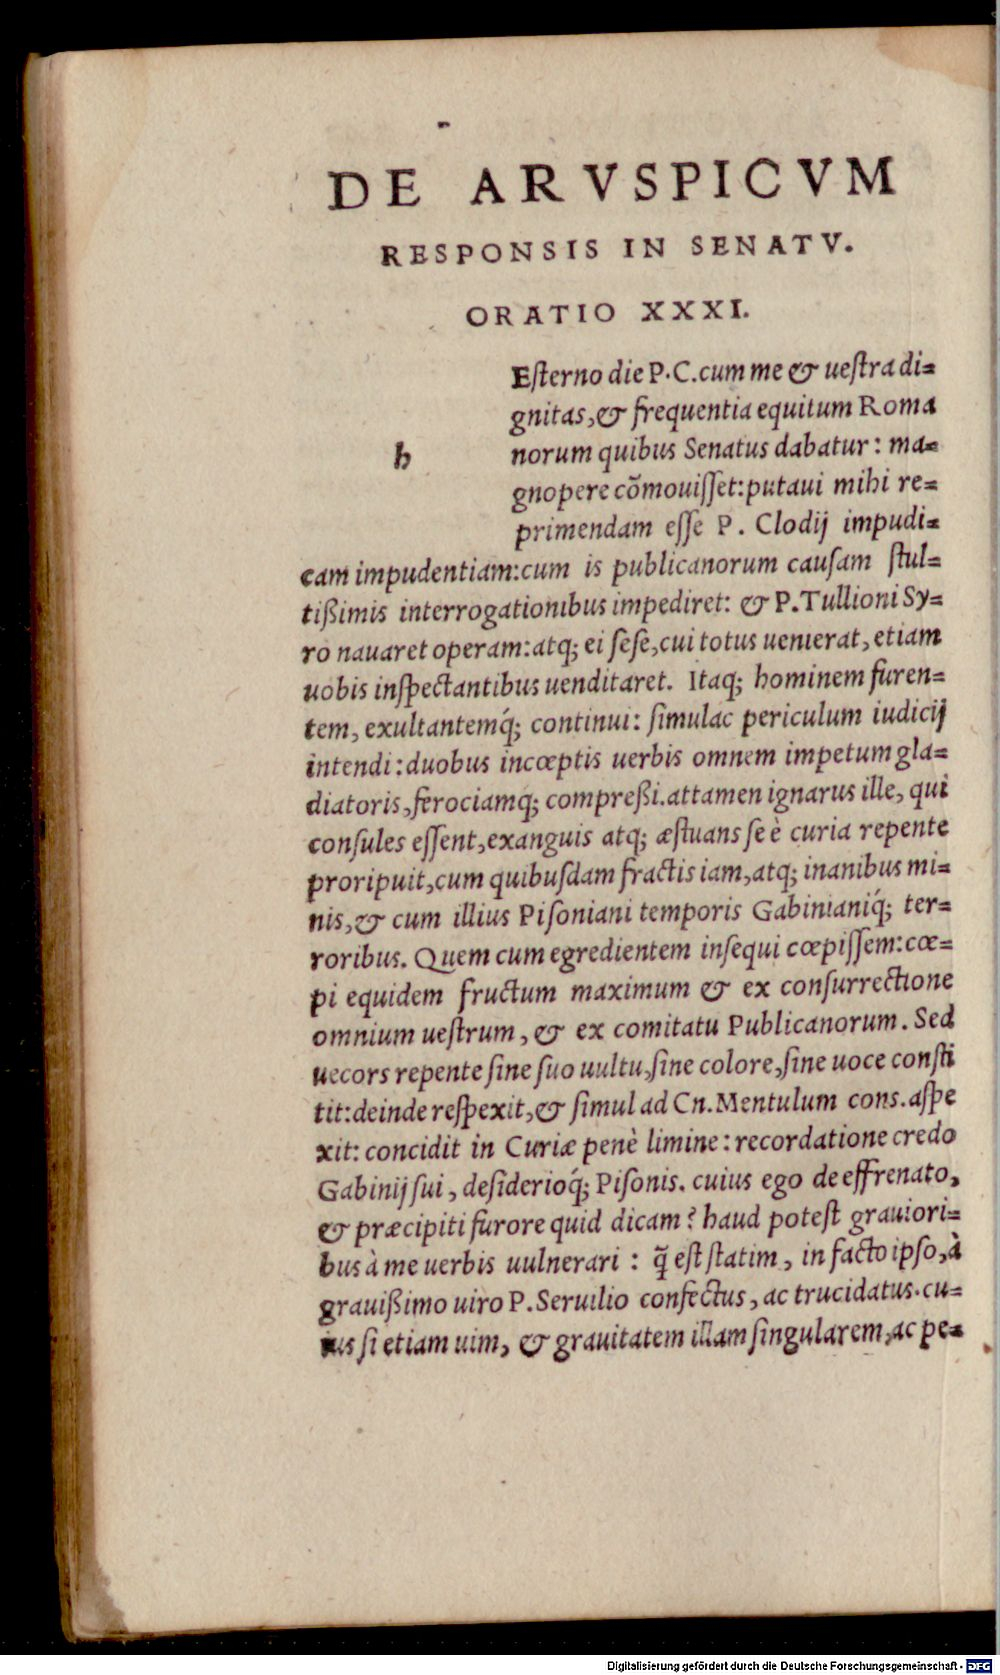 DE ARVSPICVM
RESPONSIS IN SENATV.
ORATIO XXXI.
h
Eſterno die P.C.cum me & ueſtra di=
gnitas,& frequentia equitum Roma
norum quibus Senatus dabatur: ma=
gnopere cõmouiſſet:putaui mihi re=
primendam eſſe P. Clodij impudi=
cam impudentiam:cum is publicanorum cauſam ſtul=
tißimis interrogationibus impediret: & P.Tullioni Sy=
ro nauaret operam:atq; ei ſeſe,cui totus uenierat, etiam
uobis inſpectantibus uenditaret. Itaq; hominem furen=
tem, exultantemq́; continui: ſimulac periculum iudicij
intendi:duobus incœptis uerbis omnem impetum gla=
diatoris,ferociamq; compreßi.attamen ignarus ille, qui
conſules eſſent,exanguis atq; æſtuans ſe è curia repente
proripuit,cum quibuſdam fractis iam,atq; inanibus mi=
nis,& cum illius Piſoniani temporis Gabinianiq́; ter=
roribus. Quem cum egredientem inſequi cœpiſſem:cœ=
pi equidem fructum maximum & ex conſurrectione
omnium ueſtrum, & ex comitatu Publicanorum. Sed
uecors repente ſine ſuo uultu,ſine colore,ſine uoce conſti
tit:deinde reſpexit,& ſimul ad Cn.Mentulum cons.aſpe
xit: concidit in Curiæ penè limine: recordatione credo
Gabinij ſui, deſiderioq́; Piſonis. cuius ego de effrenato,
& præcipiti furore quid dicam? haud poteſt grauiori=
bus à me uerbis uulnerari : q̃ eſt ſtatim, in facto ipſo,à
grauißimo uiro P.Seruilio confectus, ac trucidatus.cu=
ius ſi etiam uim, & grauitatem illam ſingularem,ac pe=
Digitalisierung gefördert durch die Deutsche Forschungsgemeinschaft - DFG